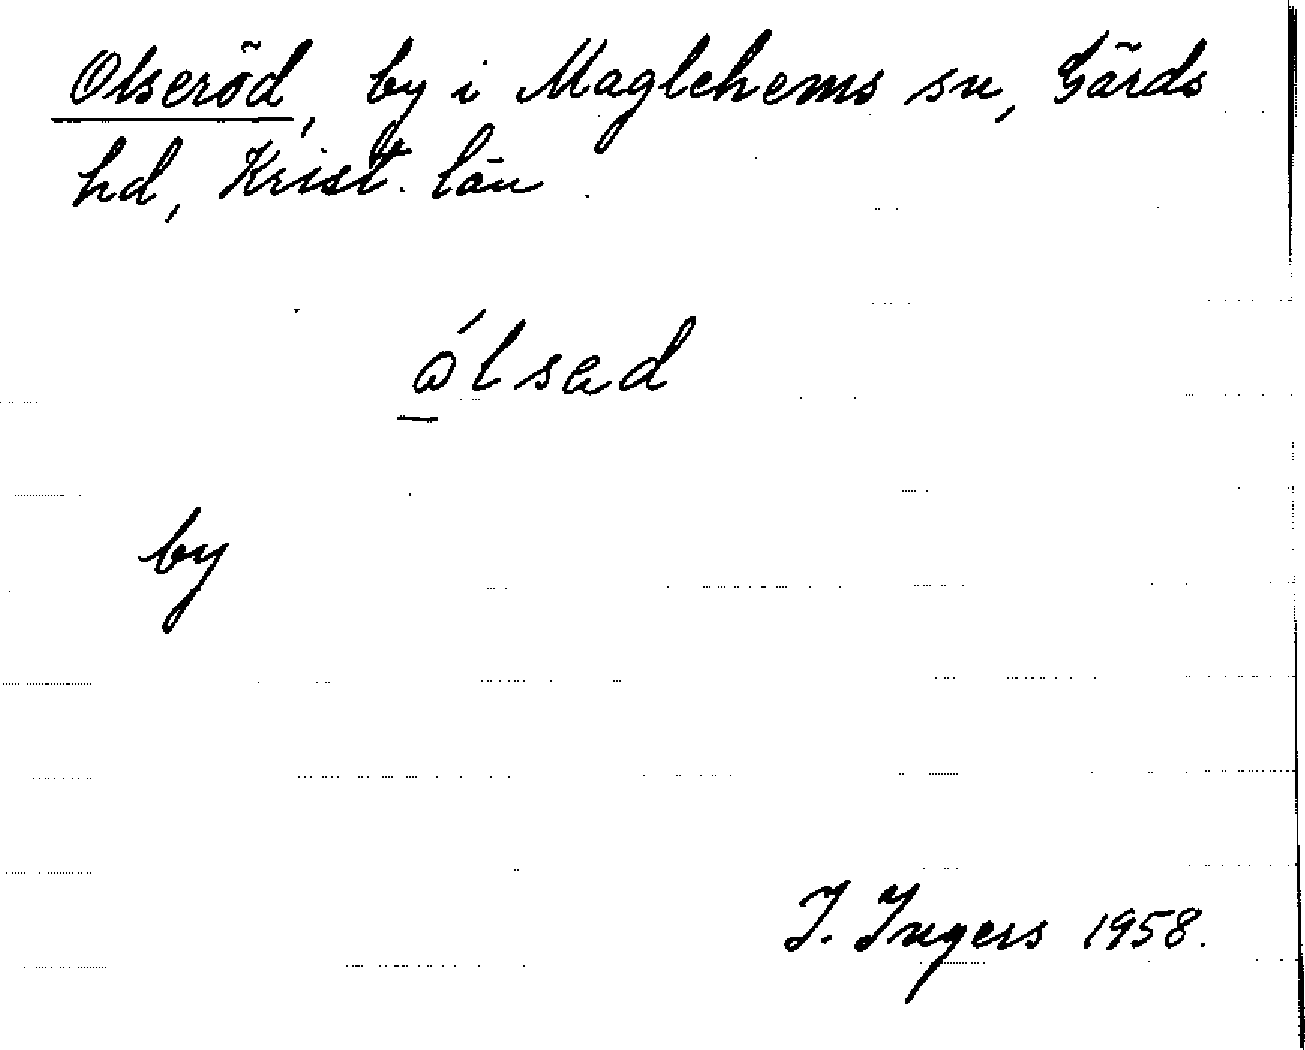 Olseröd, by i Maglehems sn, Gärds
hd, Krist. län
ólsad
by
I. Ingers 1958.